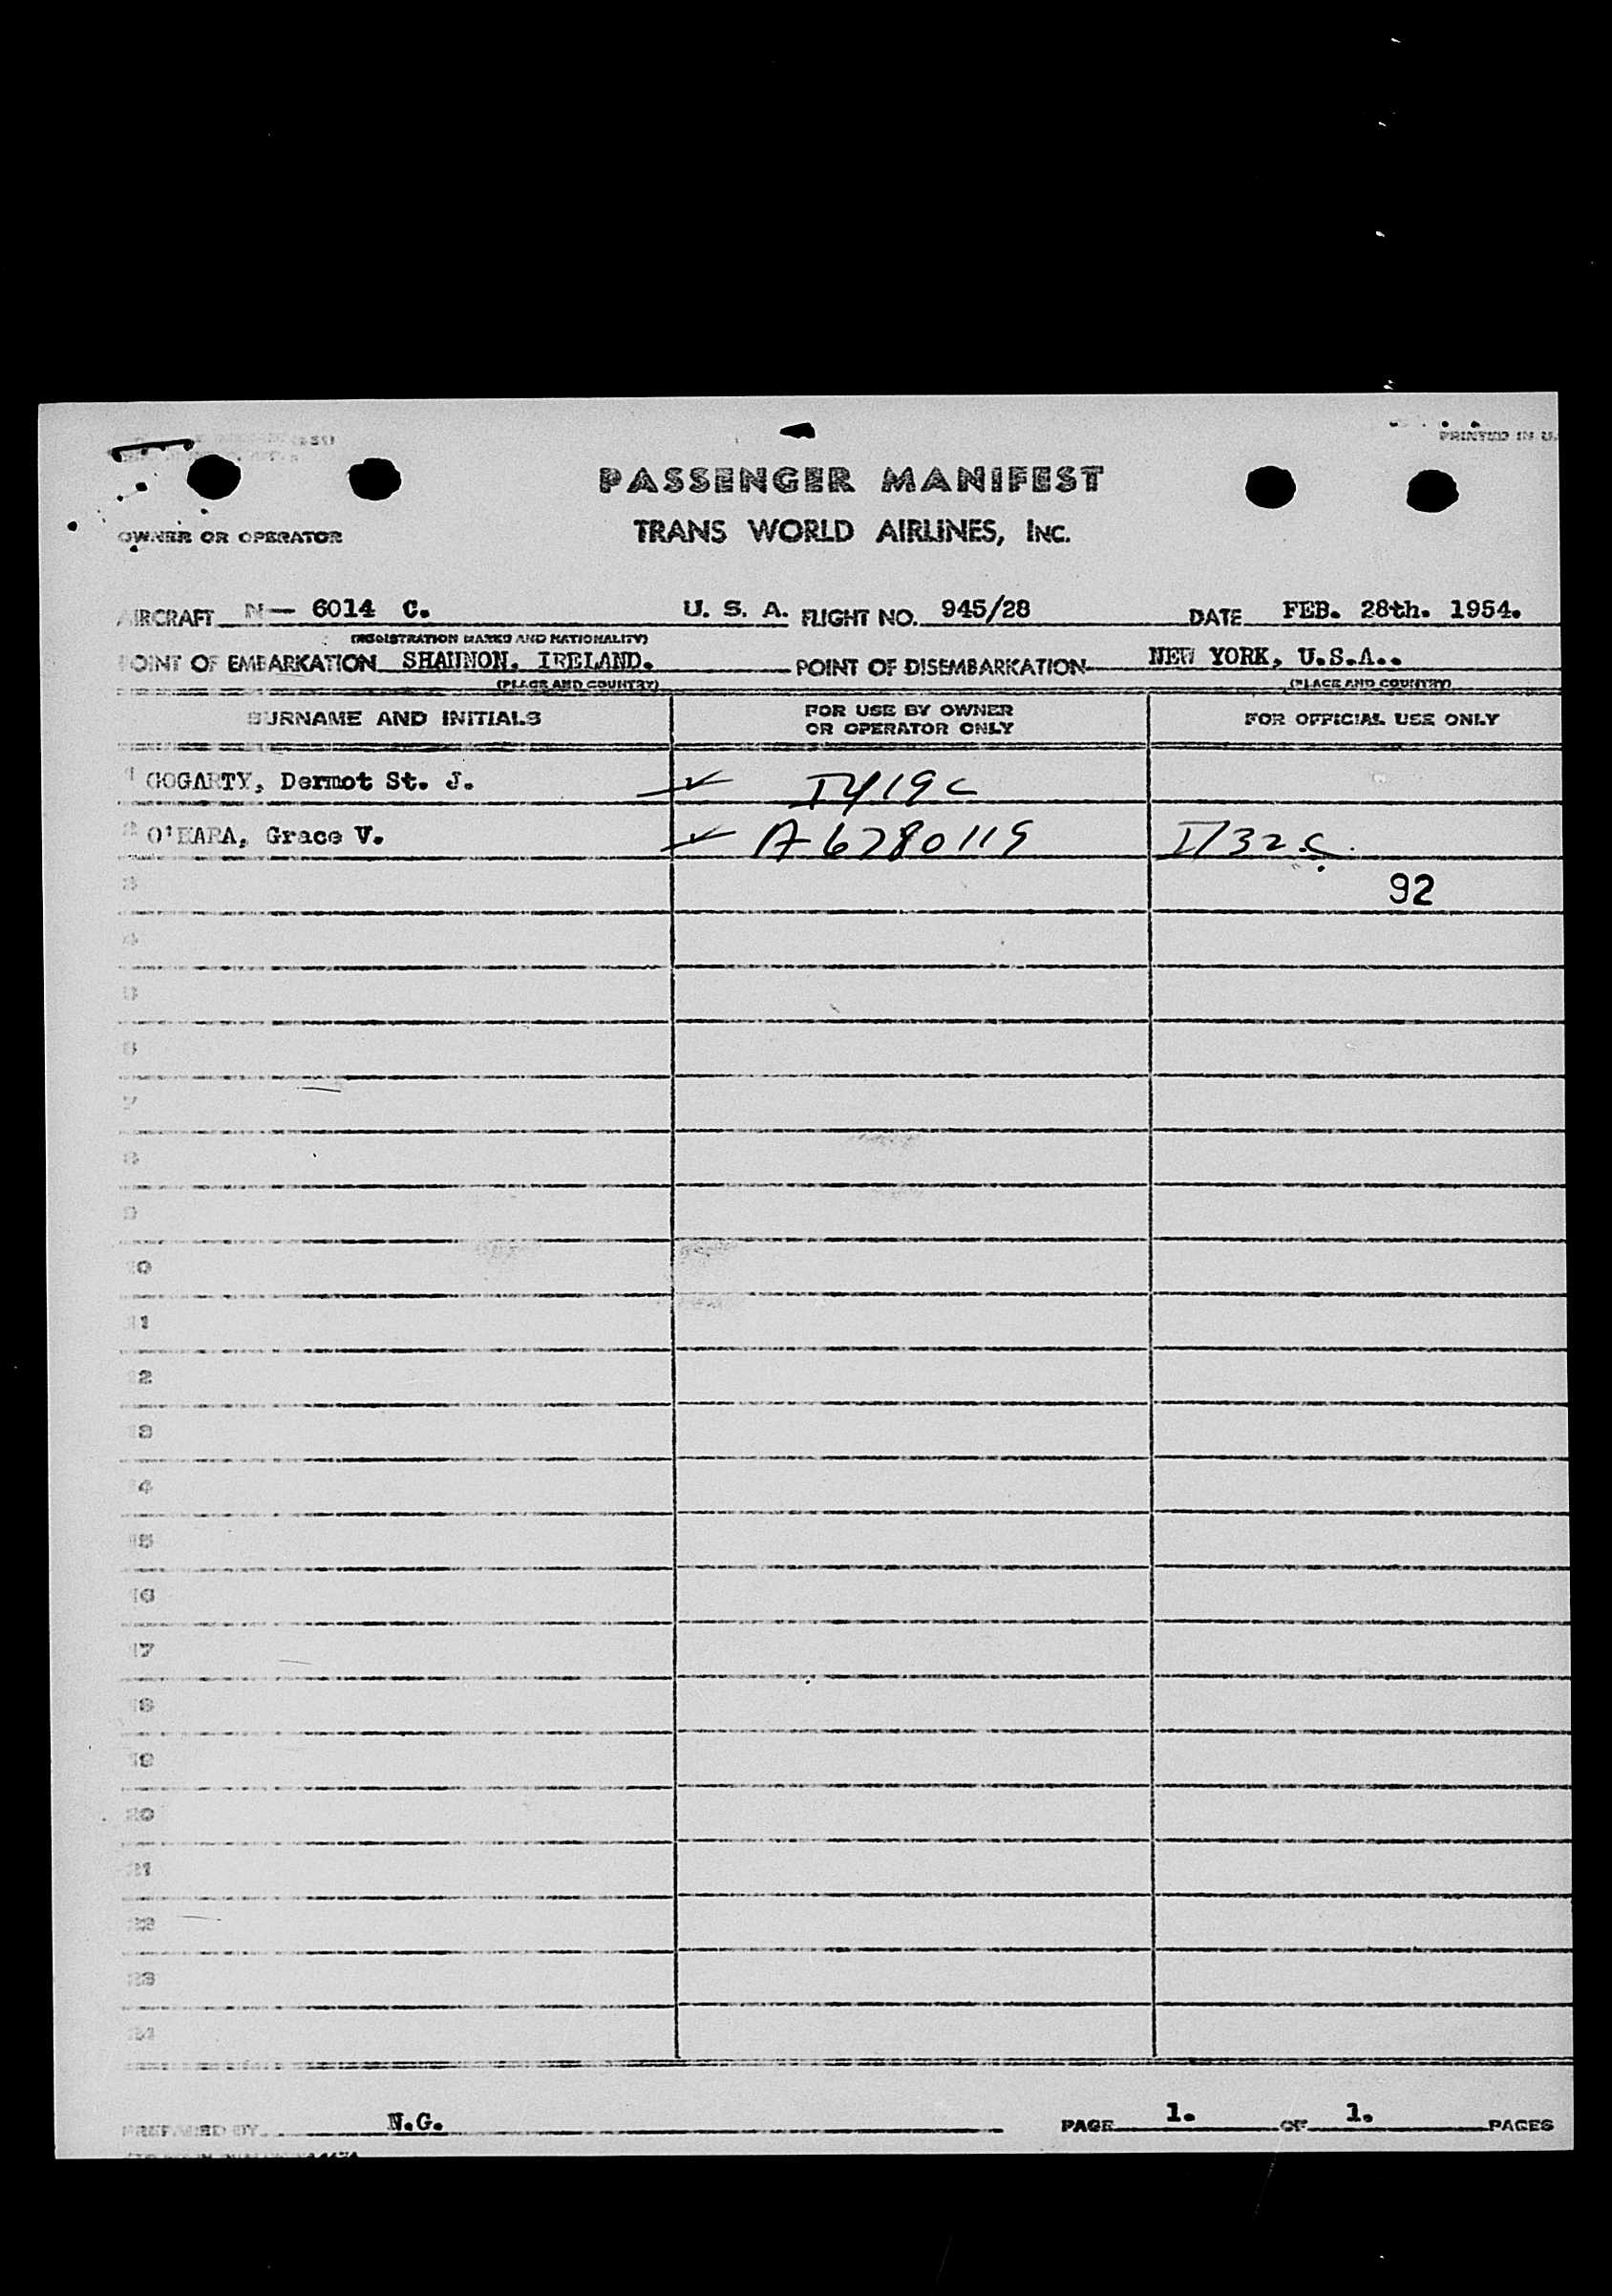 PRINTED IN U.
PASSENGER MANIFEST
OWNER OR OPERATOR TRANS WORLD AIRLINES, INC.
AIRCRAFT N- 6014 C. U. S. A. FLIGHT NO. 945/28 DATE FEB. 28th. 1954.
(REGISTRATION MARKS AND NATIONALITY)
POINT OF EMBARKATION SHANNON, IRELAND. POINT OF DISEMBARKATION NEW YORK, U.S.A..
(PLACE AND COUNTRY) (PLACE AND COUNTRY)
SURNAME AND INITIALS FOR USE BY OWNER OR OPERATOR ONLY FOR OFFICIAL USE ONLY
1 GOGARTY, Dermot St. J. ✓ I419C
2 O'HARA, Grace V. ✓ A6780119 I/32C
3 92
4
5
6
7
8
9
10
11
12
13
14
15
16
17
18
19
20
21
22
23
24
PREPARED BY N.G. PAGE 1. OF 1. PAGES